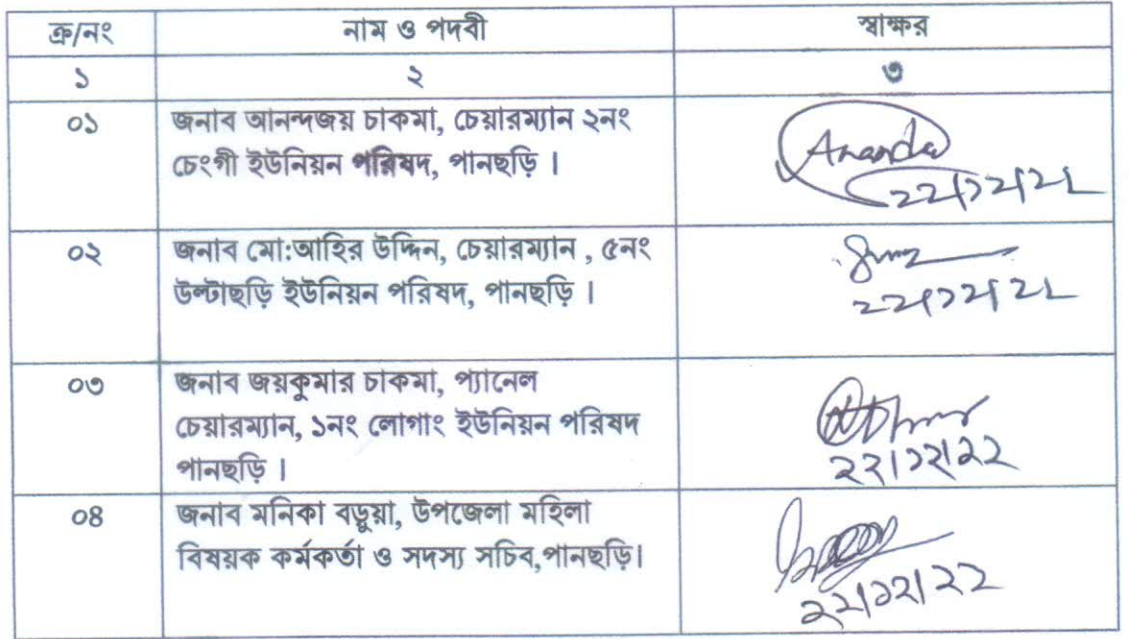 ক্র/নং নাম ও পদবী স্বাক্ষর
১ ২ ৩
০১ জনাব আনন্দজয় চাকমা, চেয়ারম্যান ২নং
চেংগী ইউনিয়ন পরিষদ, পানছড়ি ।
Ananda
০২ জনাব মো:আহির উদ্দিন, চেয়ারম্যান , ৫নং
উল্টাছড়ি ইউনিয়ন পরিষদ, পানছড়ি ।
০৩ জনাব জয়কুমার চাকমা, প্যানেল
চেয়ারম্যান, ১নং লোগাং ইউনিয়ন পরিষদ
পানছড়ি ।
২২।১২।২২
০৪ জনাব মনিকা বড়ুয়া, উপজেলা মহিলা
বিষয়ক কর্মকর্তা ও সদস্য সচিব,পানছড়ি।
২২।১২।২২